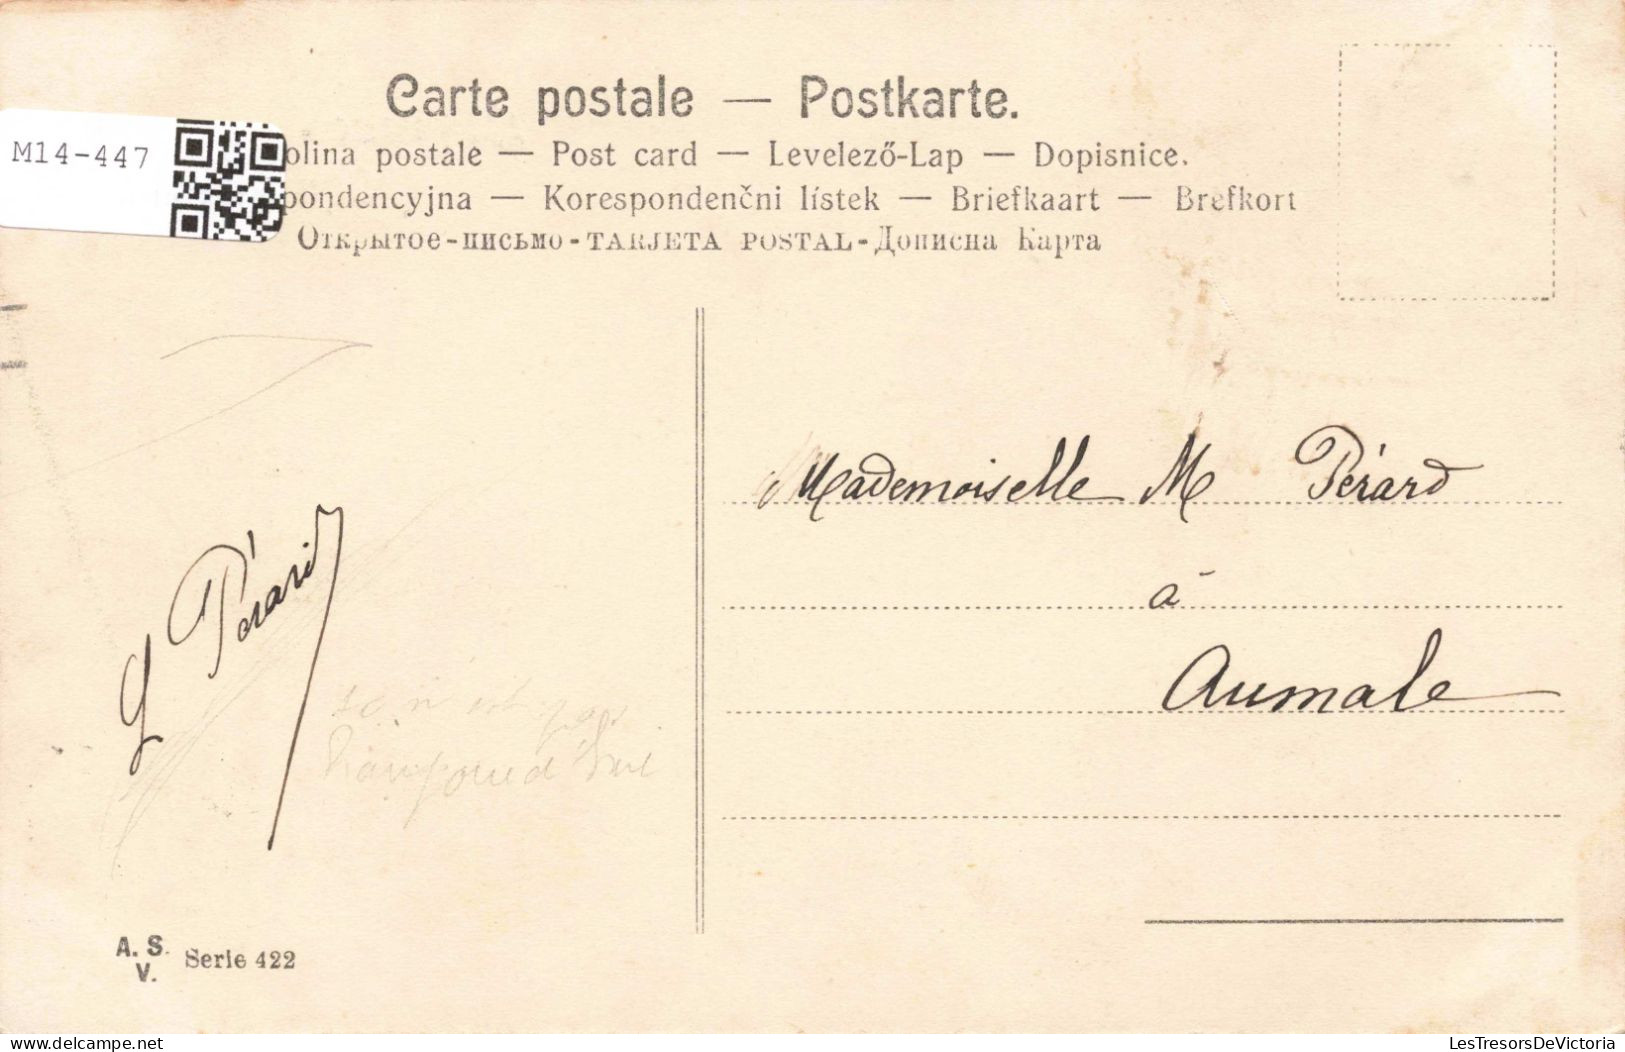 Carte postale — Postkarte.
M14-447
olina postale — Post card — Levelező-Lap — Dopisnice.
pondencyjna — Korespondenční lístek — Briefkaart — Brefkort
Открытое-письмо-TARJETA POSTAL-Дописна Карта
Mademoiselle M Pérard
à
Aumale
G Pérard
A. S.
V. Serie 422
delcampe.net
LesTresorsDeVictoria